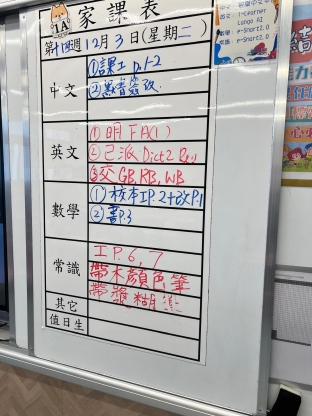 1A 家課表
第十四週 12月3日(星期二)
中文
①課工 P.1-2
英文
① 明 FA(1)
② 已派 Dict 2 Rev
③ 交 GB, RB, WB
數學
① 校本IP.2+改P.1
② 書P.3
常識
工 P.6, 7
帶木顏色筆
帶漿糊
其它
值日生
i-Learner
e-Smart2.0
e-Smart2.0